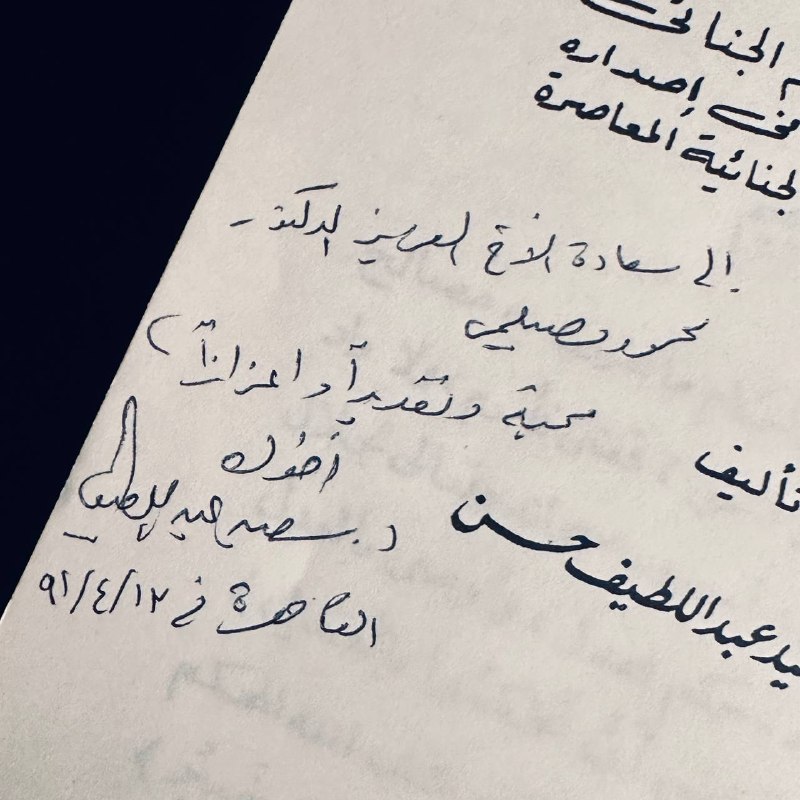 م الجنائى
فى إصداره
لجنائية المعاصرة
إلى سعادة الأخ العزيز الدكتور
محمود
محبة وتقديراً واعتزازاً
أخوك
د. سعيد عبد اللطيف
القاهرة في ١٢/٤/٩١
تأليف
يد عبد اللطيف حسن